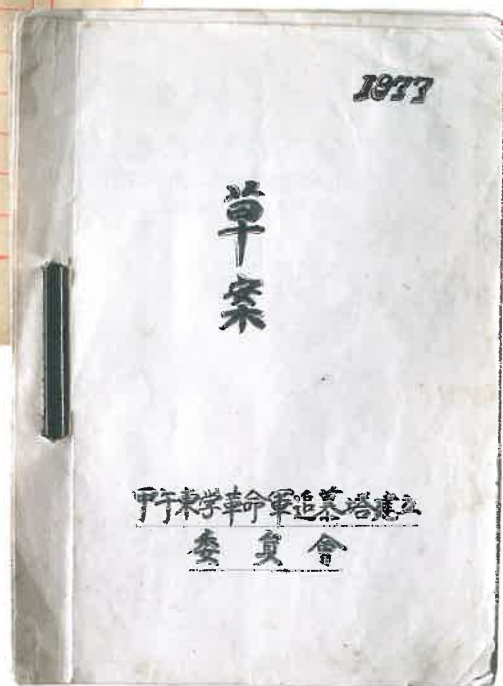 1977
草
案
甲午東学革命軍追慕塔建立
委員會